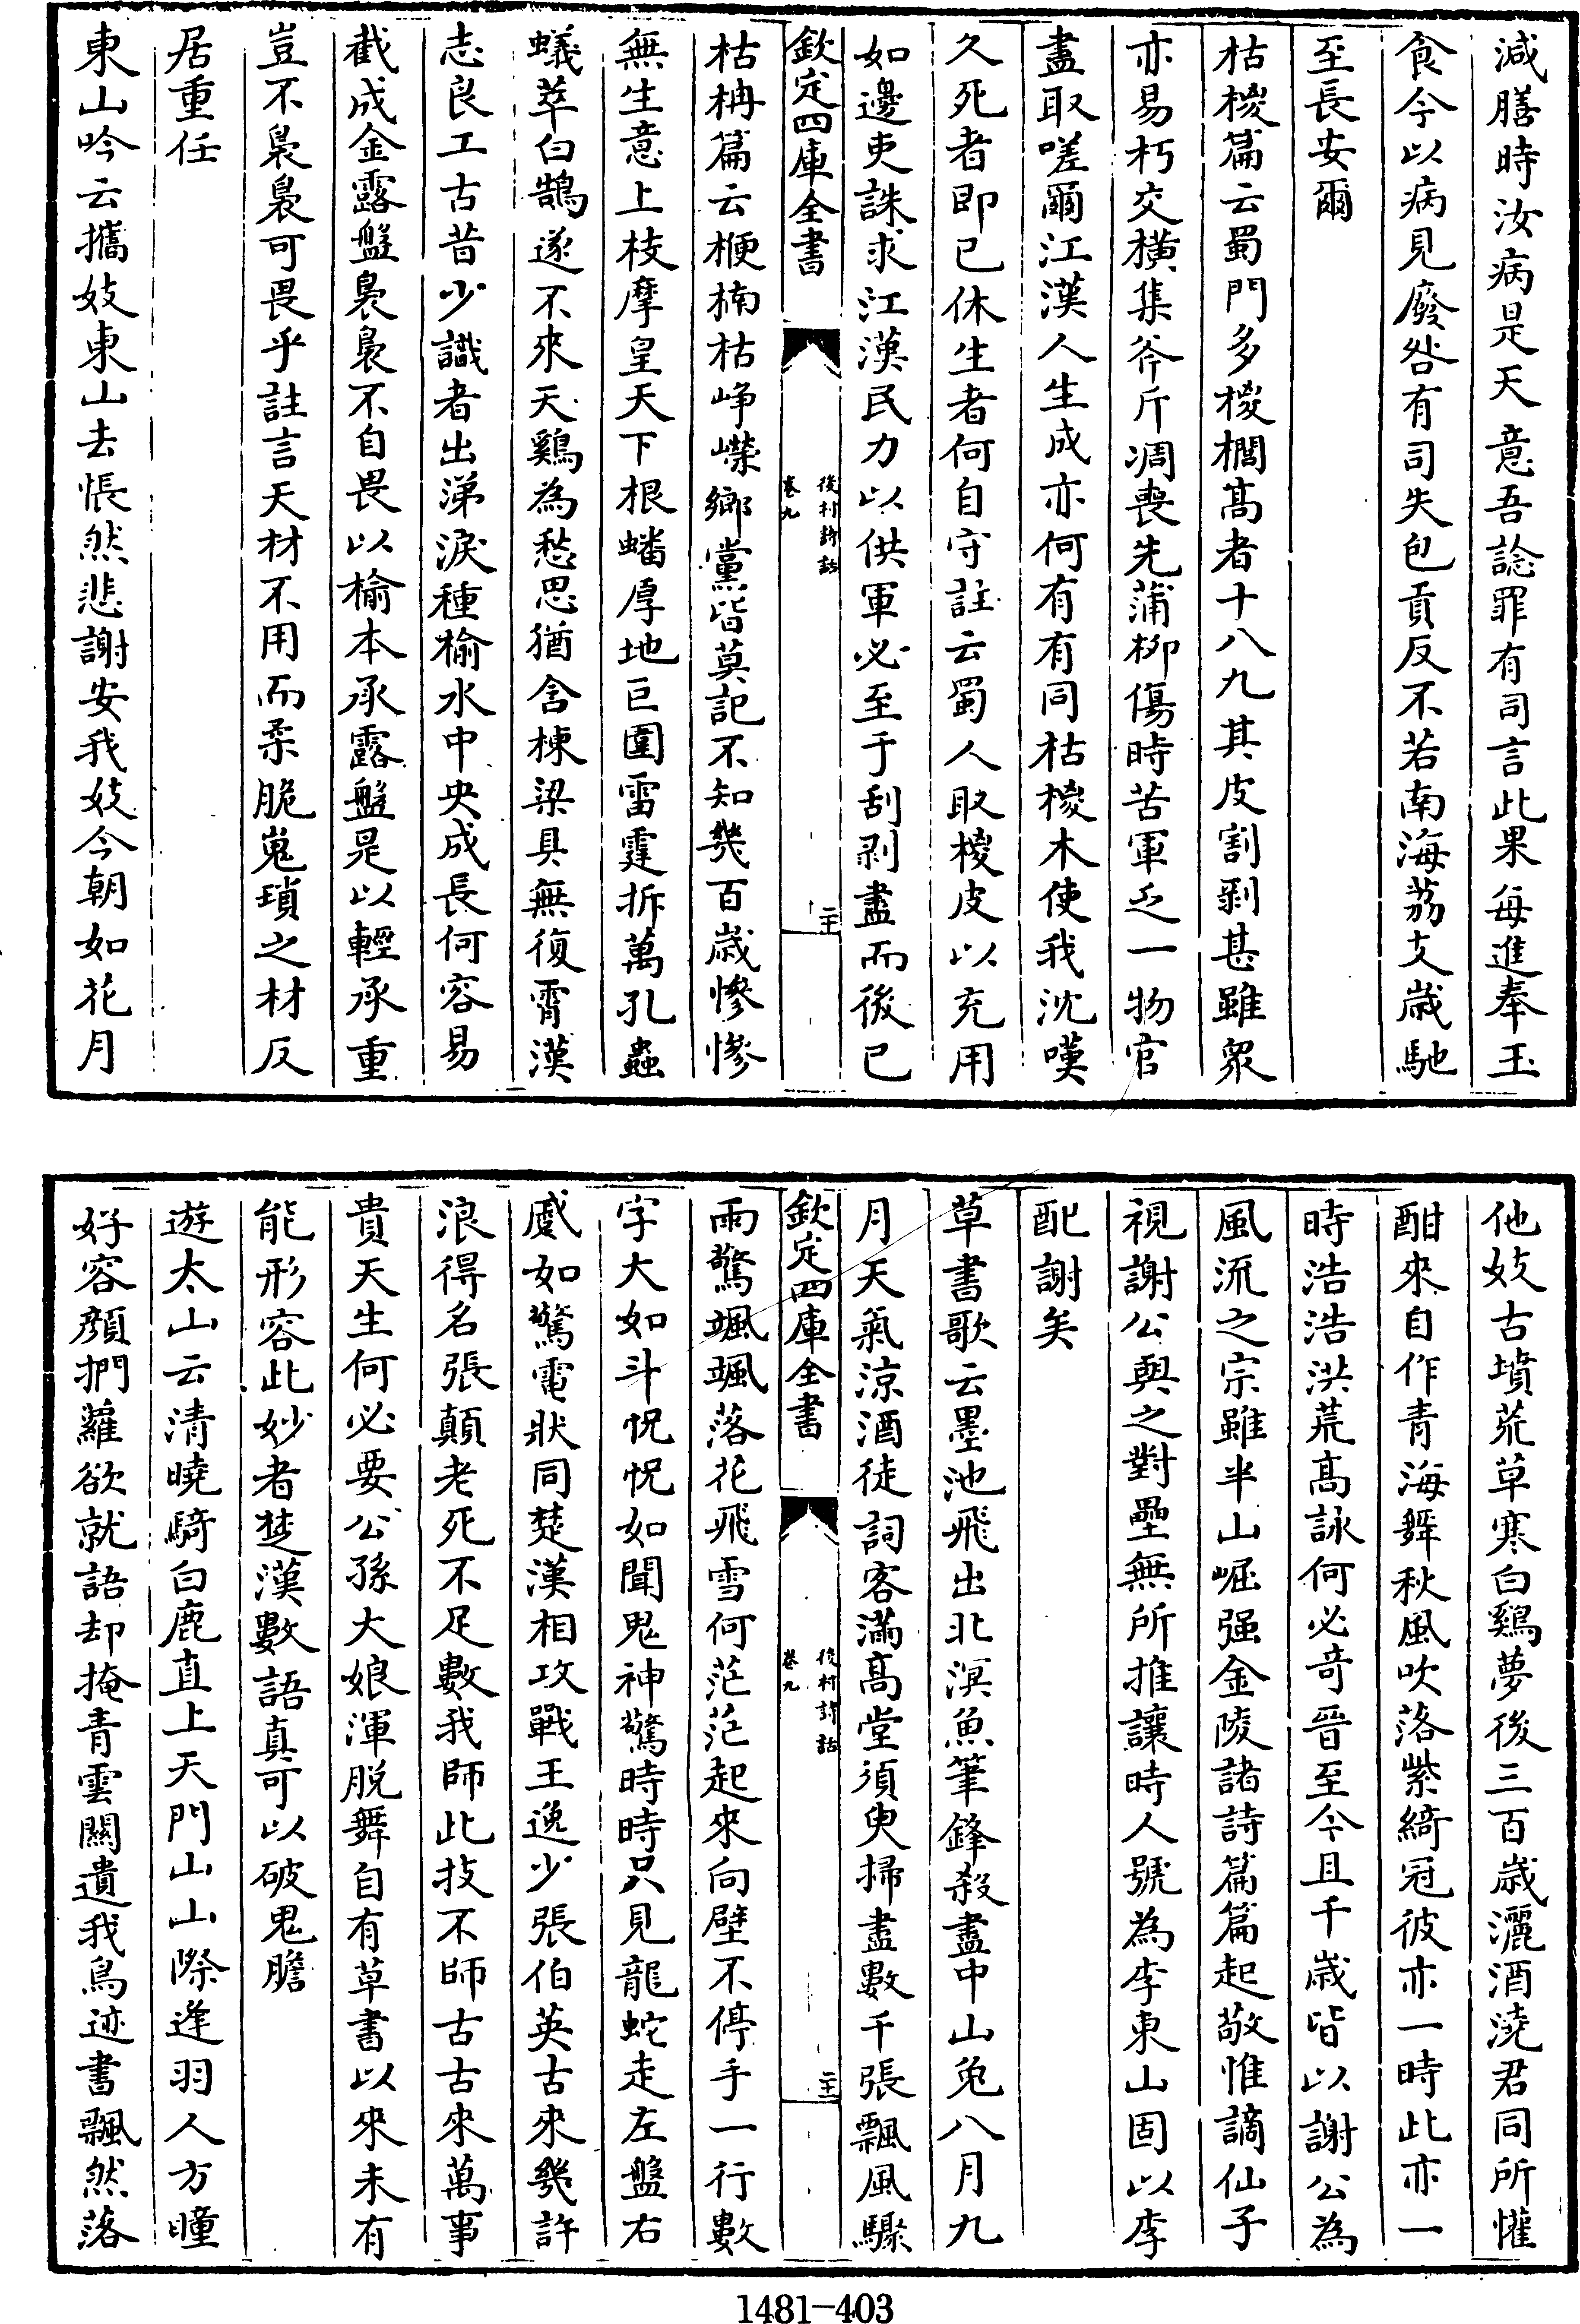 減膳時汝病是天意吾諗罪有司言此果每進奉玉
食今以病見廢咎有司失包貢反不若南海荔支歲馳
至長安爾
枯椶篇云蜀門多椶櫚髙者十八九其皮割剥甚雖衆
亦易朽交橫集斧斤凋喪先蒲柳傷時苦軍乏一物官
盡取嗟爾江漢人生成亦何有有同枯椶木使我沈嘆
久死者即已休生者何自守註云蜀人取椶皮以充用
如邊吏誅求江漢民力以供軍必至于刮剥盡而後已
欽定四庫全書
後村詩話
卷九
二十
枯柟篇云楩楠枯崢嶸鄉黨皆莫記不知幾百歲慘慘
無生意上枝摩皇天下根蟠厚地巨圍雷霆拆萬孔蟲
蟻萃白鵠遂不來天鷄為愁思猶含棟梁具無復霄漢
志良工古昔少識者出涕淚種榆水中央成長何容易
截成金露盤裊裊不自畏以榆本承露盤是以輕承重
豈不裊裊可畏乎註言天材不用而柔脆嵬瑣之材反
居重任
東山吟云攜妓東山去悵然悲謝安我妓今朝如花月
他妓古墳荒草寒白鷄夢後三百歲灑酒澆君同所懽
酣來自作青海舞秋風吹落紫綺冠彼亦一時此亦一
時浩浩洪荒髙詠何必竒晉至今且千歲皆以謝公為
風流之宗雖半山崛强金陵諸詩篇篇起敬惟謫仙子
視謝公與之對壘無所推讓時人號為李東山固以李
配謝矣
草書歌云墨池飛出北溟魚筆鋒殺盡中山兔八月九
月天氣涼酒徒詞客滿髙堂須臾掃盡數千張飄風驟
欽定四庫全書
後村詩話
卷九
二十一
雨驚颯颯落花飛雪何茫茫起來向壁不停手一行數
字大如斗怳怳如聞鬼神驚時時只見龍蛇走左盤右
蹙如驚電狀同楚漢相攻戰王逸少張伯英古來幾許
浪得名張顛老死不足數我師此技不師古古來萬事
貴天生何必要公孫大娘渾脱舞自有草書以來未有
能形容此妙者楚漢數語真可以破鬼膽
遊太山云清曉騎白鹿直上天門山山際逢羽人方瞳
好容顔捫蘿欲就語却掩青雲關遺我鳥迹書飄然落
1481-403